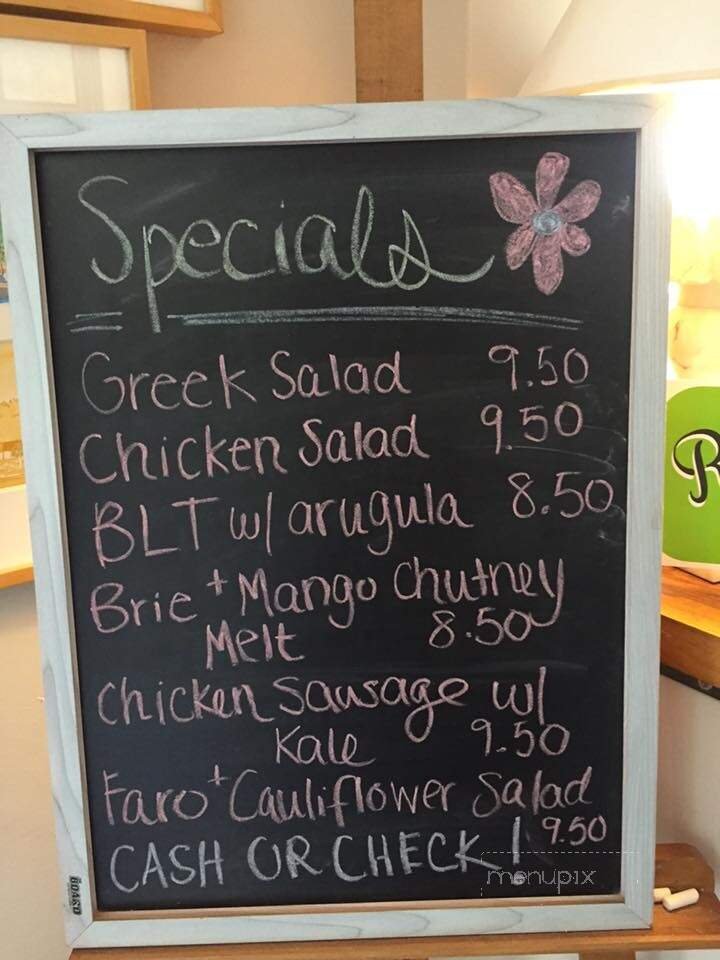 Specials
Greek Salad 9.50
Chicken Salad 9.50
BLT w/ arugula 8.50
Brie + Mango Chutney
Melt 8.50
Chicken Sausage w/
Kale 9.50
Faro + Cauliflower Salad
9.50
CASH OR CHECK!
menupix
R
BOARD